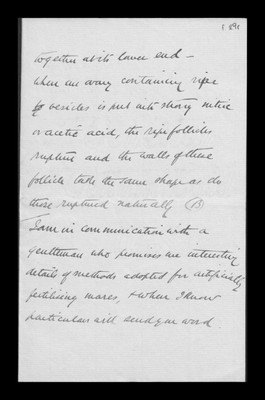 189
together at its lower end -
When an ovary containing ripe
vesicles is put into strong nitric
or acetic acid, the ripe follicles
rupture and the walls of these
follicle take the same shape as do
those ruptured naturally (B)
I am in communication with a
gentleman who promises me interesting
details of methods adopted for artificially
fertilising mares, & when I know
particulars will send you word.